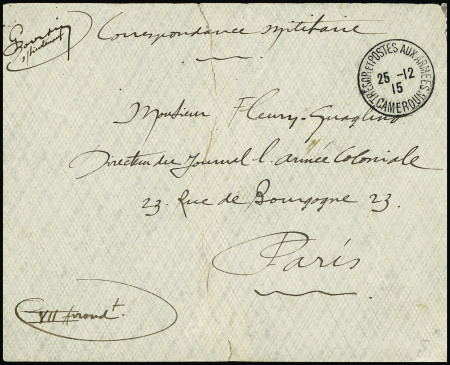 s/Lieutenant
Correspondance militaire
TRESOR ET POSTES AUX ARMEES
25 -12
15
CAMEROUN
Monsieur Fleury-Guaglino
Directeur du Journal l'armée Coloniale
23. Rue de Bourgogne 23.
Paris
VII Arrond^t.